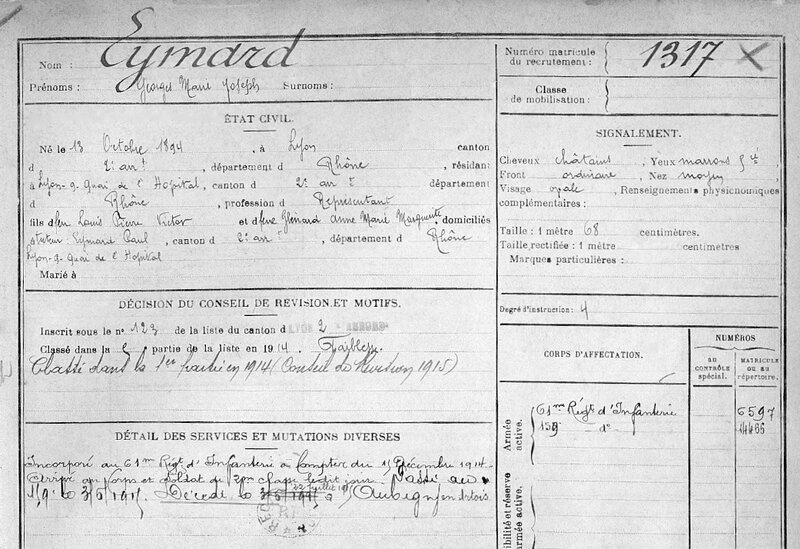 Nom : Eymard
Prénoms : Georges Marie Joseph Surnoms :
Numéro matricule
du recrutement : 1317
Classe
de mobilisation :
ÉTAT CIVIL.
Né le 13 Octobre 1894, à Lyon canton
d 2e arrt, département d Rhône, résidant
à Lyon-9-Quai de l'Hopital, canton d 2e arrt département
d Rhône, profession d Représentant
fils d feu Louis Pierre Victor et d feue Glénard Anne Marie Marguerite domiciliés
tuteur Eymard Paul, canton d 2e arrt, département d Rhône
Lyon-9-Quai de l'Hopital
Marié à
SIGNALEMENT.
Cheveux châtains, Yeux marrons f cé
Front ordinaire, Nez moyen
Visage ovale, Renseignements physionomiques
complémentaires :
Taille : 1 mètre 68 centimètres.
Taille rectifiée : 1 mètre centimètres
Marques particulières :
Degré d'instruction : 4
DÉCISION DU CONSEIL DE REVISION ET MOTIFS.
Inscrit sous le no 123 de la liste du canton d LYON 2
Classé dans la 5 partie de la liste en 1914. Faiblesse
Classé dans la 1ère partie en 1914 (Conseil de Révision 1915)
CORPS D'AFFECTATION.
NUMÉROS
au
CONTRÔLE
spécial.
MATRICULE
ou au
répertoire.
Armée
active.
61me Régt d'Infanterie 6597
159 - do - 4466
DÉTAIL DES SERVICES ET MUTATIONS DIVERSES
Incorporé au 61me Régt d'Infanterie à compter du 15 Décembre 1914.
Arrivé au Corps et soldat de 2me classe ledit jour. Passé au
159e le 3/6/1915. Décédé le 3/6/1915 22 juillet 1915 à Aubigny en Artois
ibilité et réserve
armée active.